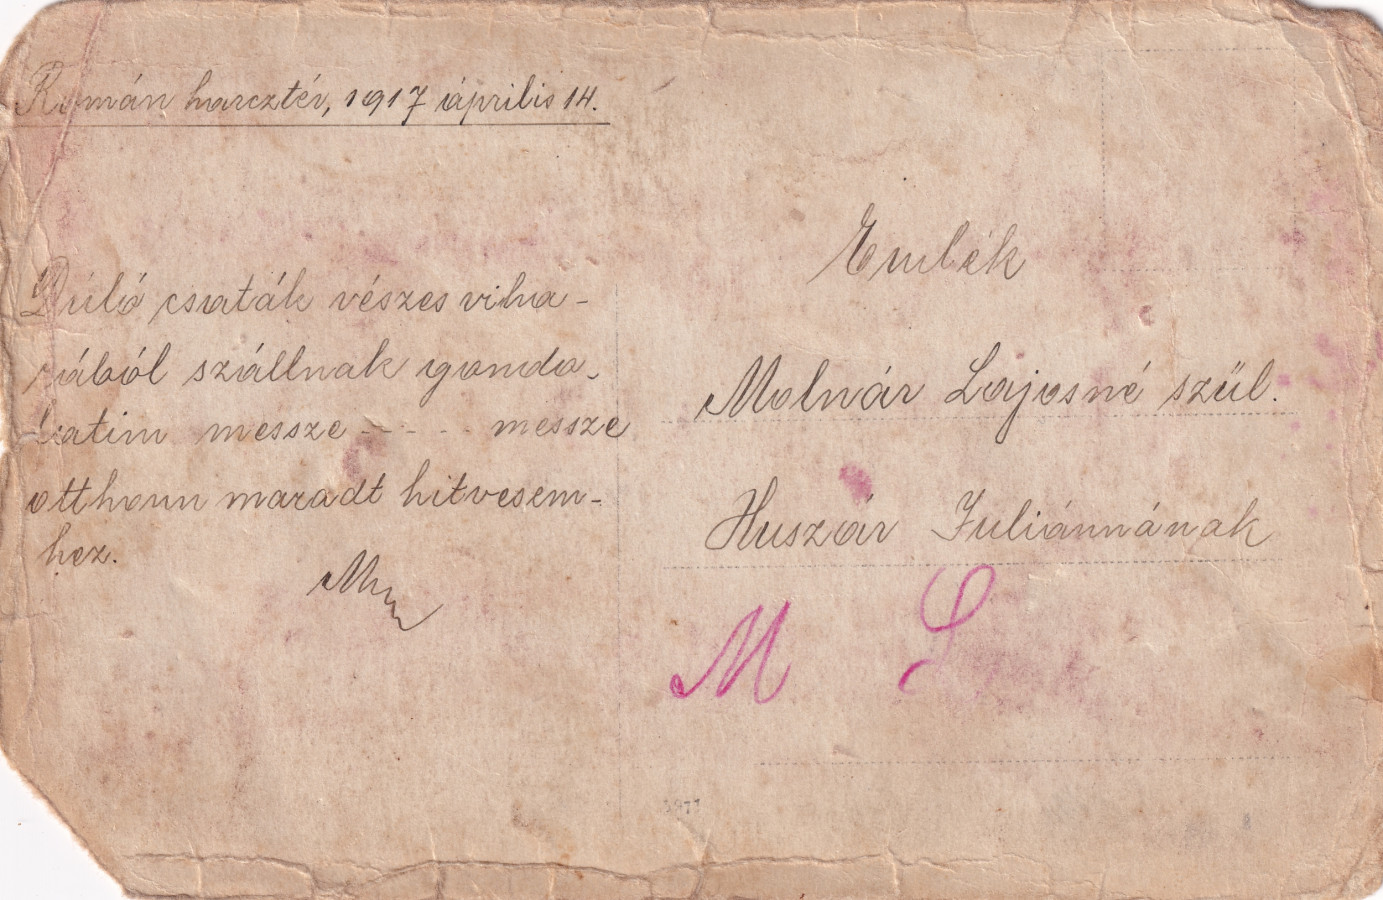 Román harcztér, 1917 április 14.
Dúló csaták vészes viha-
rából szállnak gondo-
latim messze - - - - messze
otthonn maradt hitvesem-
hez.
Emlék
Molnár Lajosné szül.
Huszár Juliánnának
M L